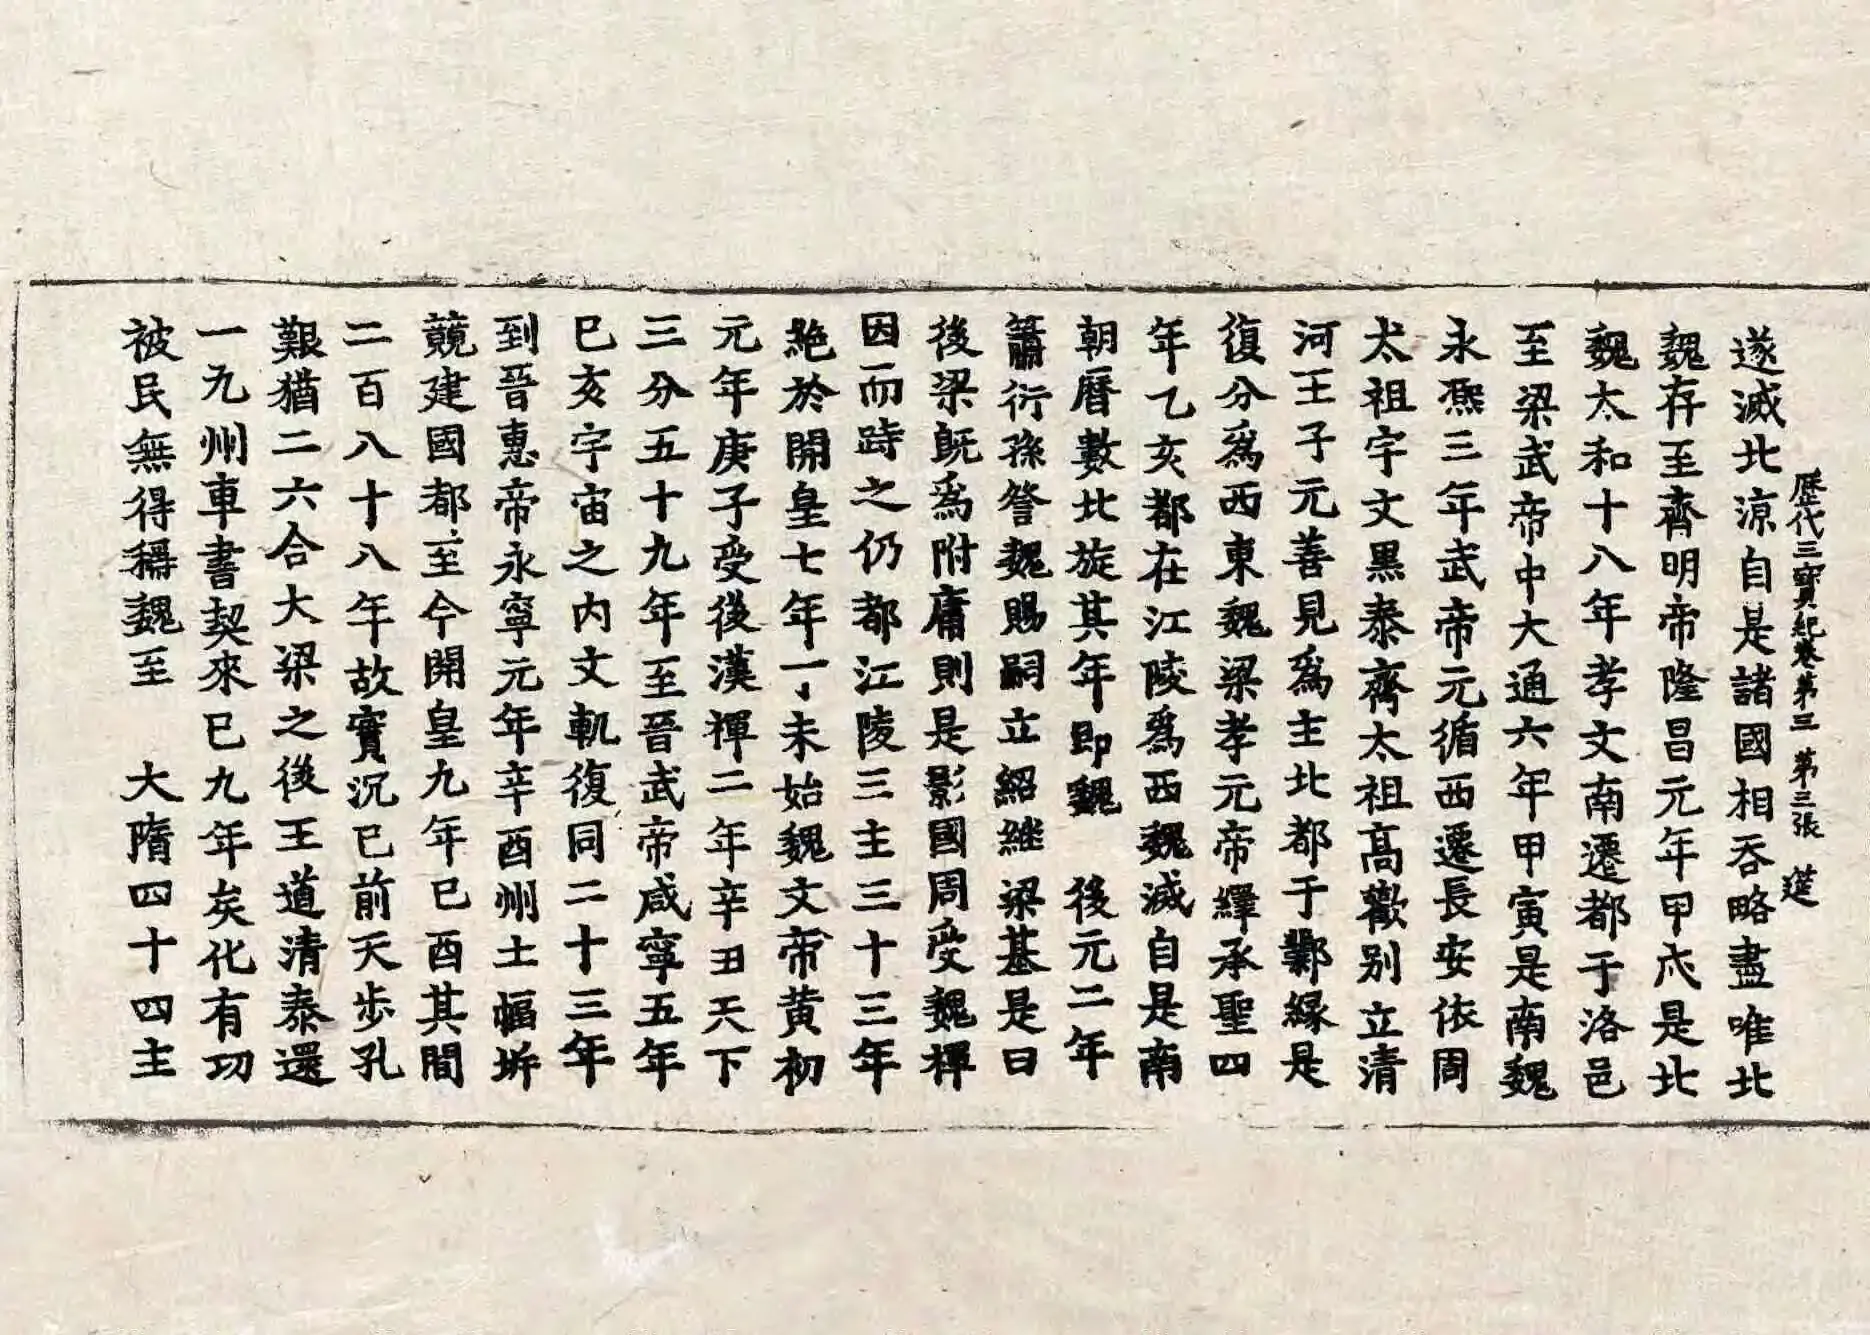 歷代三寶紀卷第三 第三張 莚
遂滅北涼自是諸國相吞略盡唯北
魏存至齊明帝隆昌元年甲戌是北
魏太和十八年孝文南遷都于洛邑
至梁武帝中大通六年甲寅是南魏
永熙三年武帝元循西遷長安依周
太祖宇文黑泰齊太祖高歡别立清
河王子元善見爲主北都于鄴緣是
復分爲西東魏梁孝元帝繹承聖四
年乙亥都在江陵爲西魏滅自是南
朝曆數北旋其年即魏 後元二年
簫衍孫詧魏賜嗣立紹継梁基是曰
後梁既爲附庸則是影國周受魏禪
因而跱之仍都江陵三主三十三年
絶於開皇七年丁未始魏文帝黄初
元年庚子受後漢禪二年辛丑天下
三分五十九年至晉武帝咸寧五年
巳亥宇宙之内文軌復同二十三年
到晉惠帝永寧元年辛酉州土幅坼
競建國都至今開皇九年巳酉其間
二百八十八年故寶沉巳前天步孔
艱猶二六合大梁之後王道清泰還
一九州車書契來巳九年矣化有功
被民無得稱魏至 大隋四十四主